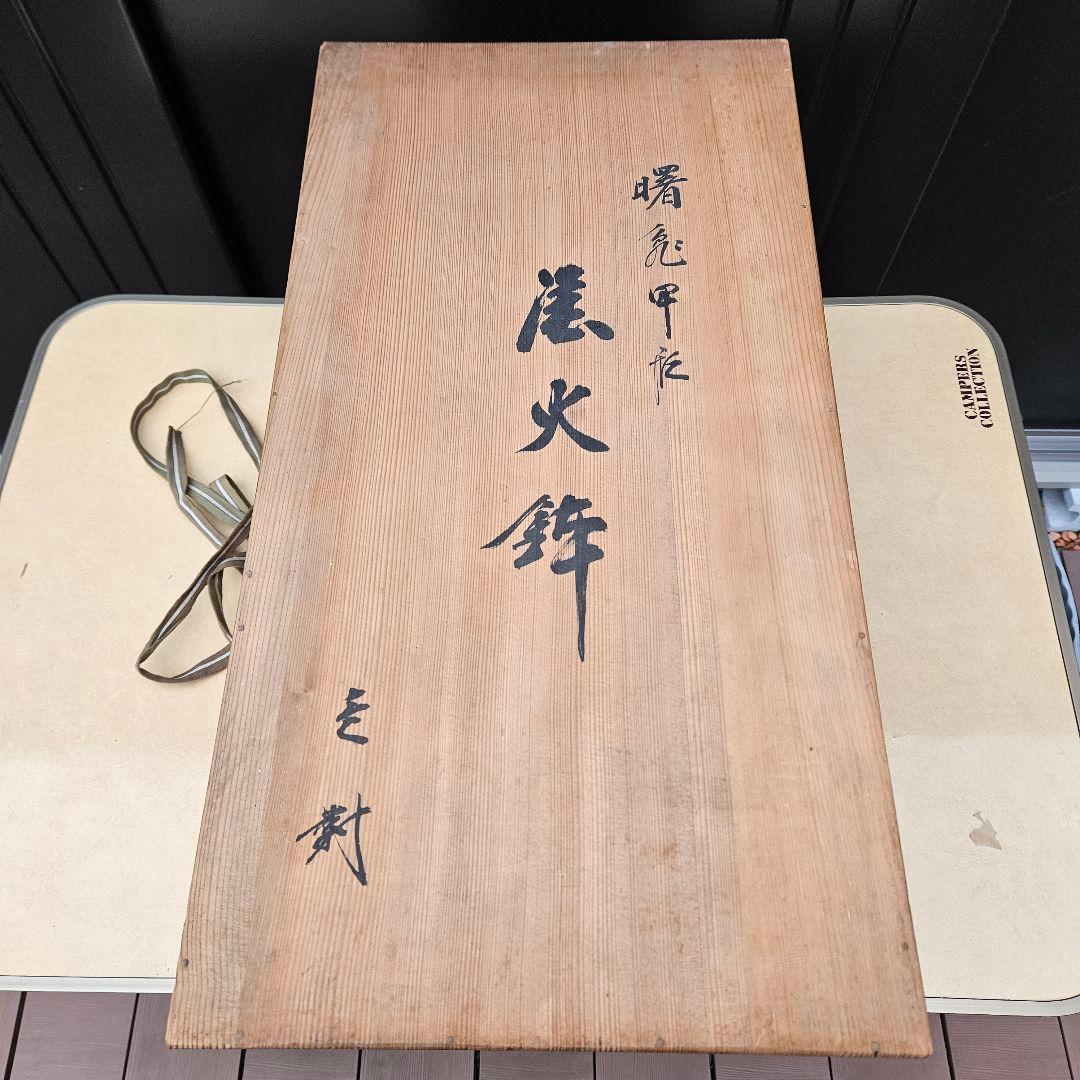 曙亀甲形
塗火鉢
壱對
CAMPERS
COLLECTION